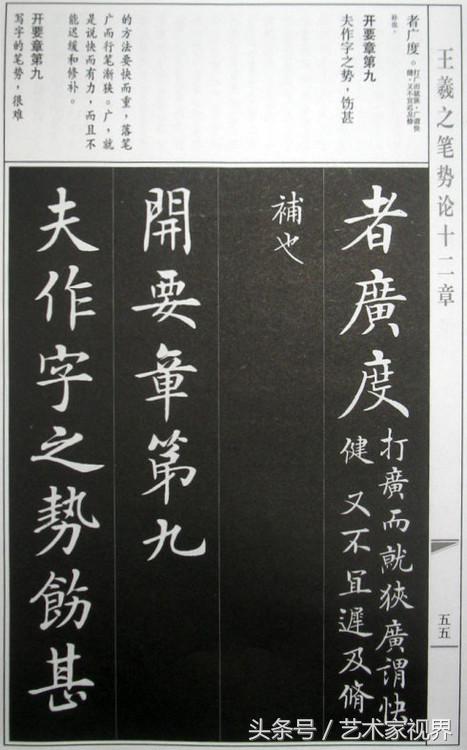 王羲之笔势论十二章
五五
者广度。打广而就狭。广谓快
健。又不宜迟及修
补也。
开要章第九
夫作字之势，饬甚
的方法要快而重，落笔
广而行笔渐狭。广，就
是说快而有力，而且不
能迟缓和修补。
开要章第九
写字的笔势，很难
者廣度打廣而就狹廣謂快
健又不宜遲及脩
補也
開要章第九
夫作字之勢飭甚
头条号／艺术家视界